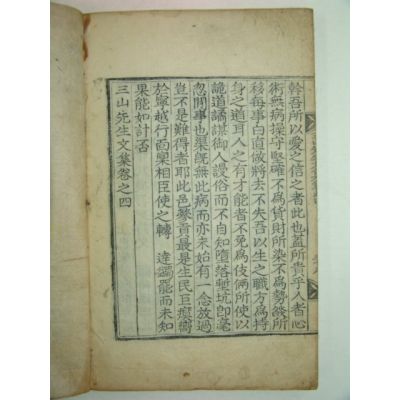 幹吾所以愛之信之者此也盖所貴乎人者心
術無病操守堅確不爲貨財所染不爲勢燄所
移每事白直做將去不失吾以生之職方爲持
身之道耳人之有才能者不免爲伎倆所使以
詭道譎謀御人謾俗而不自知墮落坑塹即毫
忽閒事也渠旣無此病而亦未始有一念放過
豈不是難得者耶此邑蔘貢最是生民巨瘼嚮
於寧越行面槖相臣使之轉 達蠲罷而未知
果能如計否
三山先生文集卷之四